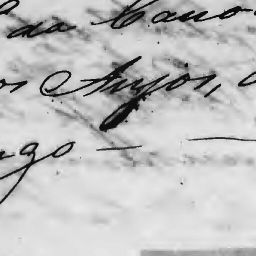 da Cano
os Anjos,
ngo —